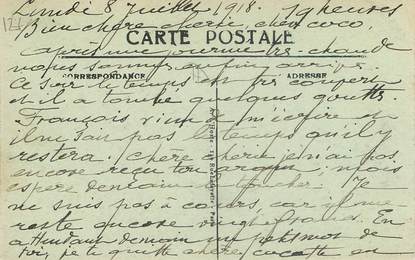 Lundi 8 Juillet 1918. 7 heures
Bien chère cherie, cher coco
CARTE POSTALE
après une journée très chaude
nous sommes enfin arrivé
CORRESPONDANCE
ADRESSE
Ce soir le temps est très couvert
et il a tombé quelques gouttes.
François vient de m'ecrire et
il ne sait pas le temps qu'il y
restera. chère cherie je n'ai pas
encore reçu ton mais
espère demain le toucher. Je
ne suis pas à court, car il me
reste encore vingt francs. En
attendant demain un petit mot de
toi, je te quitte chère cocotte en